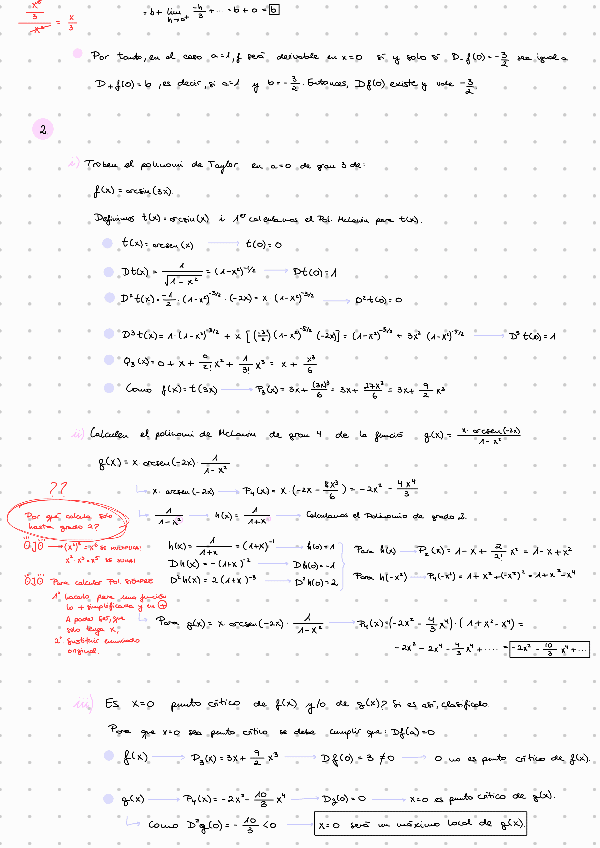 x³/3 / x² = x/3
= b + lim h→0⁺ -h/3 + ... = b + 0 = b
Por tanto, en el caso a=1, f será derivable en x=0 si y solo si D-f(0) = -3/2 sea igual a
D+f(0) = b, es decir, si a=1 y b = -3/2. Entonces, Df(0) existe y vale -3/2.
2
i) Troben el polinomi de Taylor en a=0 de grau 3 de:
f(x) = arcsin(3x).
Definimos t(x) = arcsin(x) i 1º calculamos el Pol. McLaurin para t(x).
t(x) = arcsen(x) → t(0) = 0
Dt(x) = 1/√(1-x²) = (1-x²)^(-1/2) → Dt(0) = 1
D²t(x) = -1/2 · (1-x²)^(-3/2) · (-2x) = x · (1-x²)^(-3/2) → D²t(0) = 0
D³t(x) = 1 · (1-x²)^(-3/2) + x [(-3/2)(1-x²)^(-5/2) (-2x)] = (1-x²)^(-3/2) + 3x² (1-x²)^(-5/2) → D³t(0) = 1
Q₃(x) = 0 + x + 0/2! x² + 1/3! x³ = x + x³/6
Como f(x) = t(3x) → P₃(x) = 3x + (3x)³/6 = 3x + 27x³/6 = 3x + 9/2 x³
ii) Calculen el polinomi de McLaurin de grau 4 de la funció g(x) = x · arcsen(-2x) / 1-x²
g(x) = x · arcsen(-2x) · 1/1-x²
??
x · arcsen(-2x) → P₄(x) = x · (-2x - 8x³/6) = -2x² - 4x⁴/3
Por qué calcula solo
hasta grado 2?
1/1-x² → h(x) = 1/1+x → Calculamos el Polinomio de grado 2.
OJO → (x²)² = x⁴ se multiplica!
x² · x³ = x⁵ se suma!
h(x) = 1/1+x = (1+x)⁻¹ h(0) = 1
Dh(x) = -(1+x)⁻² → Dh(0) = -1
D²h(x) = 2(1+x)⁻³ → D²h(0) = 2
Para h(x) → P₂(x) = 1 - x + 2/2! x² = 1 - x + x²
Para h(-x²) → P₄(-x²) = 1 + x² + (-x²)² = 1 + x² - x⁴
OJO Para calcular Pol. SIEMPRE
1º hacerlo para una función
lo + simplificada y en +
A poder ser, que
solo tenga x,
2º Sustituir enunciado
original.
Para g(x) = x · arcsen(-2x) · 1/1-x² → P₄(x) = (-2x² - 4/3 x⁴) · (1 + x² - x⁴) =
-2x² - 2x⁴ - 4/3 x⁴ + ..... = -2x² - 10/3 x⁴ + ...
iii) Es x=0 punto crítico de f(x) y/o de g(x)? Si es así, clasifícalo
Para que x=0 sea punto crítico se debe cumplir que: Df(a) = 0
f(x) → P₃(x) = 3x + 9/2 x³ → Df(0) = 3 ≠ 0 → 0 no es punto crítico de f(x).
g(x) → P₄(x) = -2x² - 10/3 x⁴ → Dg(0) = 0 → x=0 es punto crítico de g(x).
Como D²g(0) = -10/3 < 0 → x=0 será un máximo local de g(x).